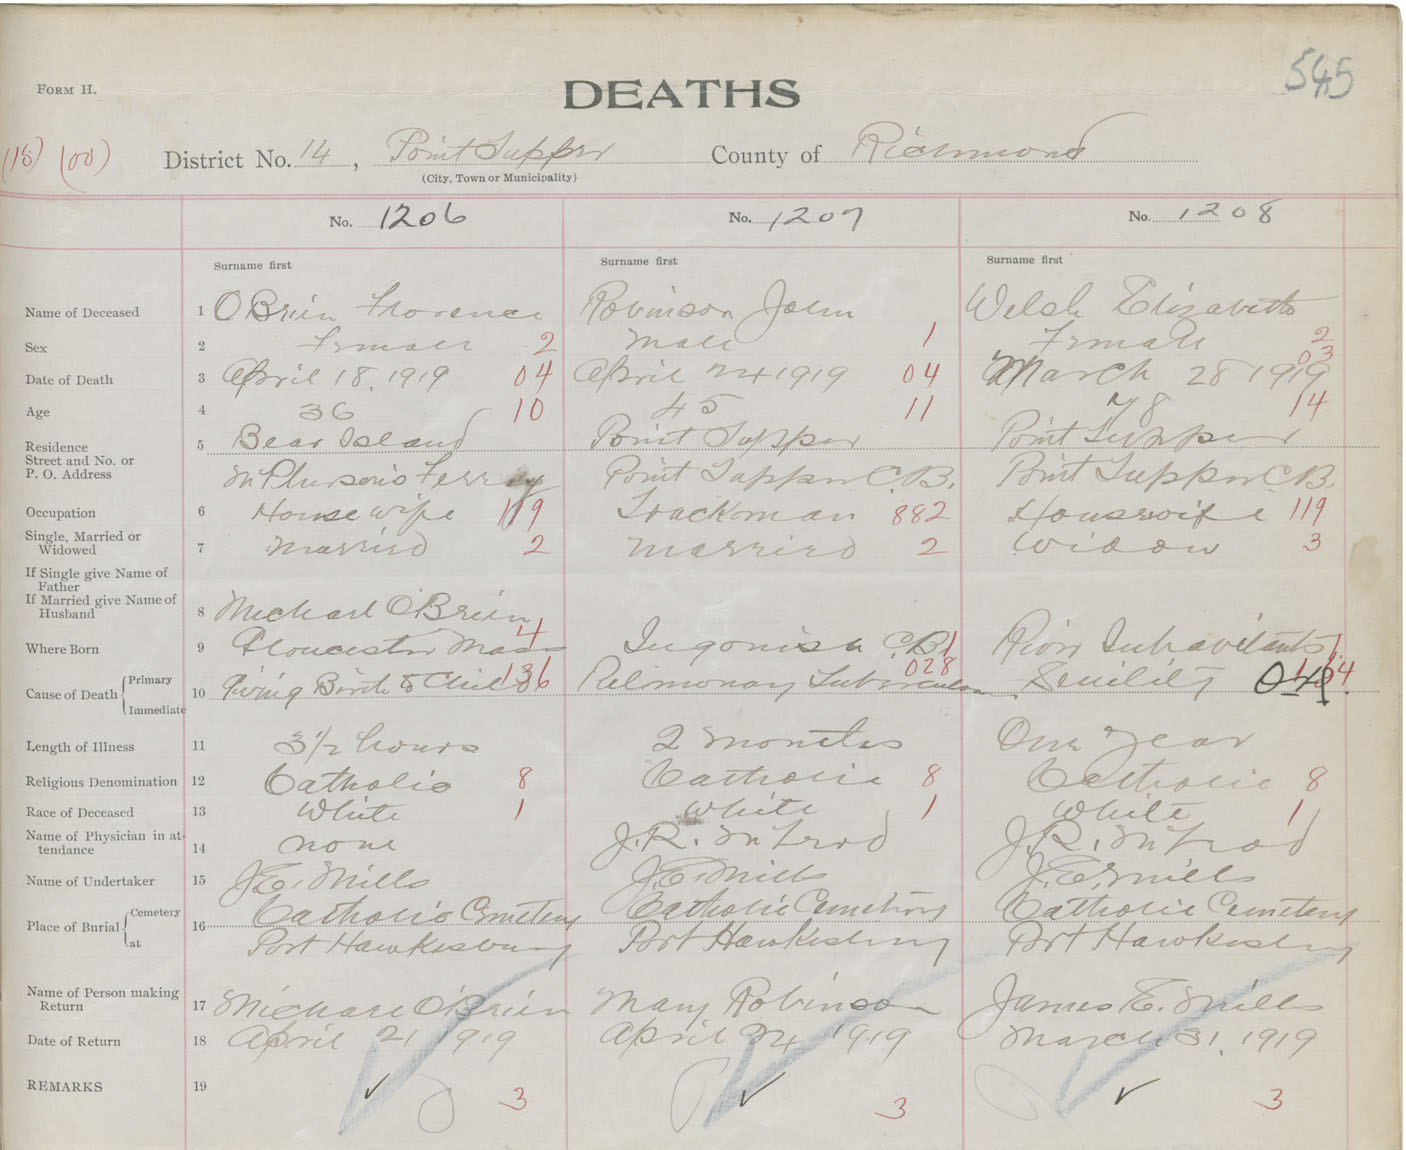 545
FORM H.
DEATHS
(18) (00) District No. 14, Point Tupper County of Richmond
(City, Town or Municipality)
No. 1206 No. 1207 No. 1208
Surname first Surname first Surname first
Name of Deceased 1 O'Brien Florence Robinson John Welsh Elizabeth
Sex 2 Female 2 Male 1 Female 2
03
Date of Death 3 April 18, 1919 04 April 24 1919 04 March 28 1919
Age 4 36 10 45 11 78 14
Residence 5 Bear Island Point Tupper Point Tupper
Street and No. or
P. O. Address McPherson's Ferry Point Tupper C.B. Point Tupper C.B.
Occupation 6 Housewife 119 Trackman 882 Housewife 119
Single, Married or
Widowed 7 Married 2 Married 2 Widow 3
If Single give Name of
Father
If Married give Name of
Husband 8 Michael O'Brien
Where Born 9 Gloucester Mass 4 Ingonish C.B. 1 River Inhavitants 1
Cause of Death { Primary 10 Giving Birth to Child 136 Pulmonary Tuberculosis 028 Senility
Immediate
Length of Illness 11 3 1/2 hours 2 months One Year
Religious Denomination 12 Catholic 8 Catholic 8 Catholic 8
Race of Deceased 13 White 1 White 1 White 1
Name of Physician in at-
tendance 14 none J.R. McLeod J.R. McLeod
Name of Undertaker 15 J.E. Mills J.E. Mills J.E. Mills
Place of Burial { Cemetery 16 Catholic Cemetery Catholic Cemetery Catholic Cemetery
at Port Hawkesbury Port Hawkesbury Port Hawkesbury
Name of Person making
Return 17 Michael O'Brien Mary Robinson James E. Mills
Date of Return 18 April 21 1919 April 24 1919 March 31, 1919
REMARKS 19 3 3 3